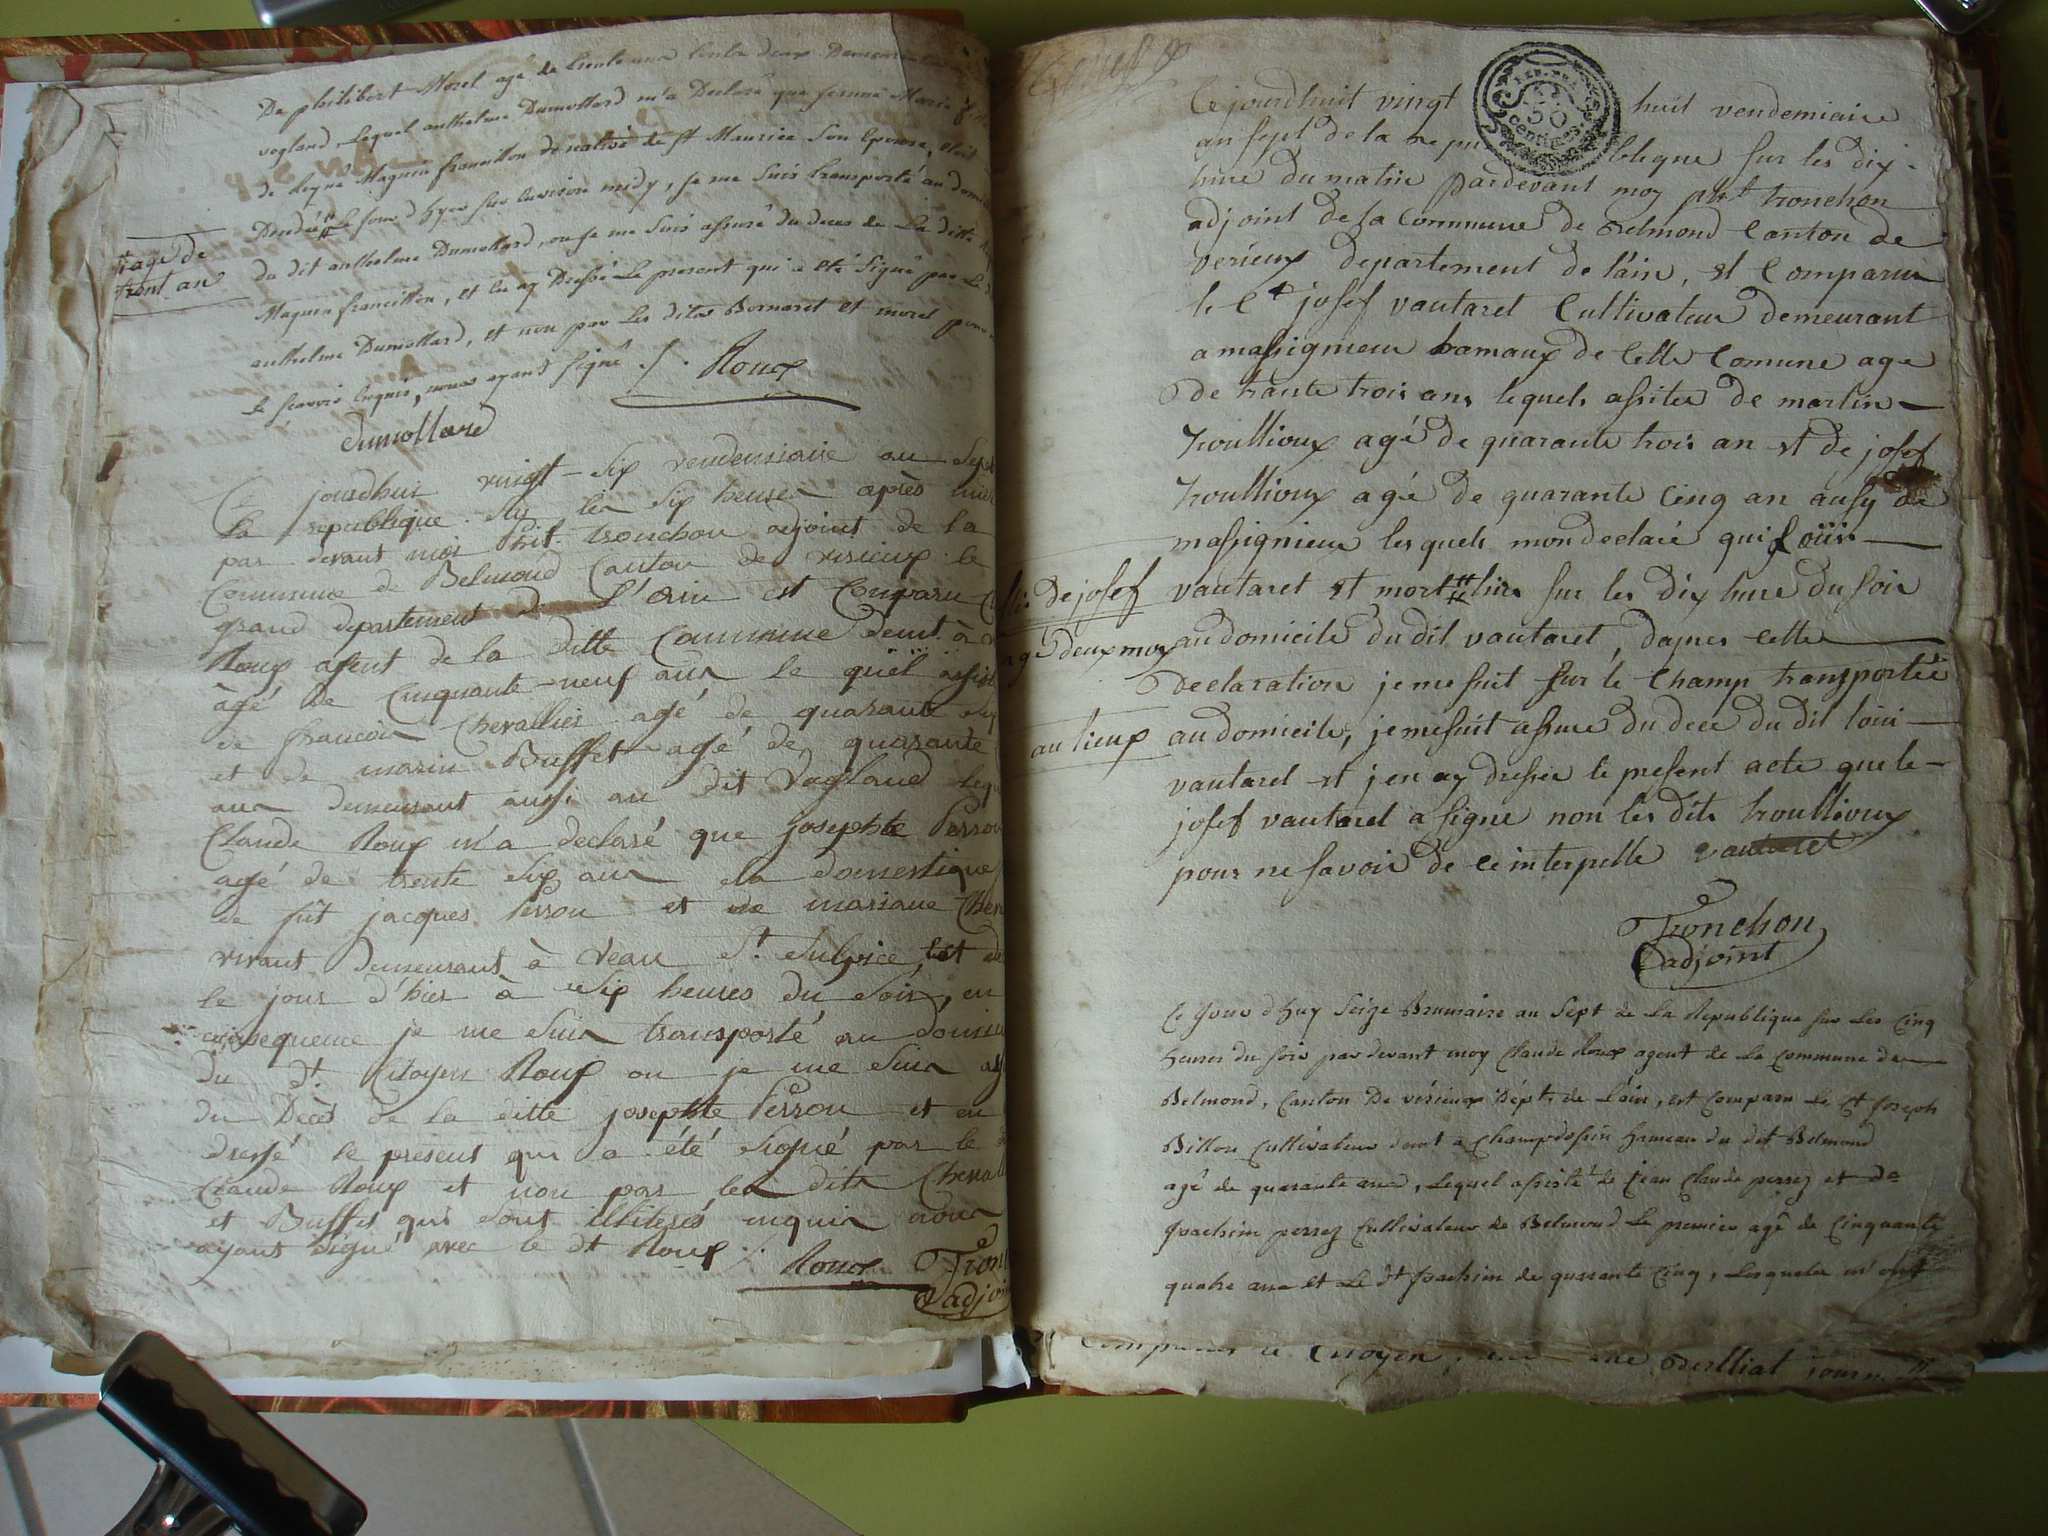 De philibert Morel agé de trente deux Demeurant
vogland, Lequel anthelme Dumollard m'a Declaré que femme Marie
Maguin francillon de native de st Maurice son epouse, etoit
Le jour d hyer sur environ midy, je me suis transporté au dom
tt age de
trent an
du dit anthelme Dumollard, ou je me suis assuré du deces de La ditte
Maguin francillon, et en ay Dressé Le present qui a eté signé par Le
anthelme Dumollard, et non par Les dits Bornaret et morel pour
Le scavoir enquis, nous ayant signé ./. Roux
dumollard
Ce jourdhui vingt-six vendemiaire an sept
la republique sur les six heures après mid
par devant moi Phit. tronchon adjoint de la
Commune de Belmond Canton de virieux le
grand departement de L'ain est Comparu
Roux agent de la ditte Commune demt. à
âgé de Cinquante-neuf ans le quel assist
de francois Chevallier agé de quarante six
et de marin Buffet agé de quarante
ans demeurant aussi au dit Vogland lequ
Claude Roux m'a declaré que josephte Perrou
agé de trente six ans sa domestique
de fût jacques Perrou et de mariane Chev
vivant demeurant à Veau St. Sulpice est
le jour d'hier à six heures du soir, en
consequence je me suis transporté au domici
du dt. Citoyen Roux ou je me suis as
du Décès de la ditte josephte Perrou et en
dressé le présent qui a été signé par le
Claude Roux et non par les dits Cheval
et Buffet qui sont illiterés enquis nous
ayant signé avec le dt Roux ./. Roux Tron
adjoi
Ce jourdhuit vingt huit vendemiaire
an sept de la repu blique sur les dix
hure du matin pardevant moy pht tronchon
adjoint de la Commune de Belmond Canton de
verieux departement de l'ain, et Comparu
le Ct josef vautaret Cultivateur demeurant
a massignieu hamaux de Cette Comune age
de trante trois ans lequels assiter de martin
troullioux agé de quarante trois an et de josef
troullioux agé de quarante Cinq an ausy de
massignieu lesquels mon declaré qui Loüis
fils de josef
vautaret et mort hier sur les dix hure du soir
agé deux moy
au domicile du dit vautaret, dapres cette
declaration je me suit sur le champ transportée
au lieux
au domicile, je me suit assure du dece du dit loüi
vautaret et j en ay dresser le present acte que le
josef vautaret a signe non les dits troullioux
pour ne savoir de ce interpelle vautaret
Tronchon
adjoint
Ce jour d huy seize Brumaire an sept de La Republique sur Les cinq
heures du soir par devant moy Claude Roux agent de La commune de
Belmond, Canton De virieux Dépt. de L'ain, est comparu Le Ct Joseph
Billon Cultivateur demt a Champdossin hameau du dit Belmond
agé de quarante ans, Lequel assisté de Jean Claude perrez et de
Joachim perrez Cultivateur de Belmond Le premier agé de Cinquante
quatre ans et Le dt Joachim de quarante cinq, Lesquels m'ont
Citoyen